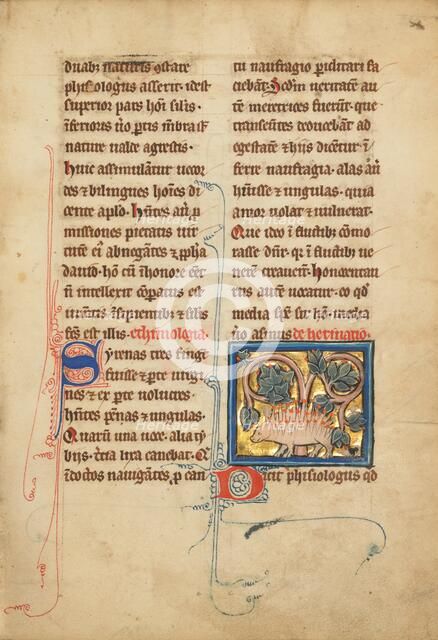 duabꝫ naturis ꝯstare
phisiologus asserit · idest
superior pars hoī similis ·
īferioris ũo ꝑtis mēbra st̄
nature ualde agrestis ·
huic assimilant᷑ uecor
des ⁊ bilingues hoīes di
cente apľo · hñtes aut̄ ꝑ
missiones pietatis uir
tutē eī abnegātes ⁊ ꝓpha
dauid · hō cū ī honore eēt
ñ intellexit cōparatus est
iumētis īsipientibꝫ ⁊ silis
fc̄s est illis · ethimologia
Syrenas tres fingi
fuisse ⁊ ex ꝑte uirgi
nes ⁊ ex ꝑte uolucres ·
hñtes pēnas ⁊ ungulas ·
Quarū una uoce · alia ty
biis · t̄cia lira canebat · Q̄
īdoctos nauigātes · ꝑ can
tū naufragio ꝑiclitari fa
ciebāt · Scďm ueritatē aut̄
tu meretrices fuerūt · que
transeūtes deducebāt ad
egestatē ⁊ hiis dicūt᷑ ī
ferre naufragia · alas aut̄
hĩuisse ⁊ ungulas · quia
amor uolat ⁊ uulnerat ·
Que ideo ī fluctibꝫ cōmo
rasse dn̄r · qr̄ ī fluctibꝫ ue
nerē creauerit · honocentau
rus autē uocatur · eo qđ
media hō · media
ũo asinus de herinatio ·
Dicit phisiologus qđ
Heritage Images
Heritage Images
Heritage Images